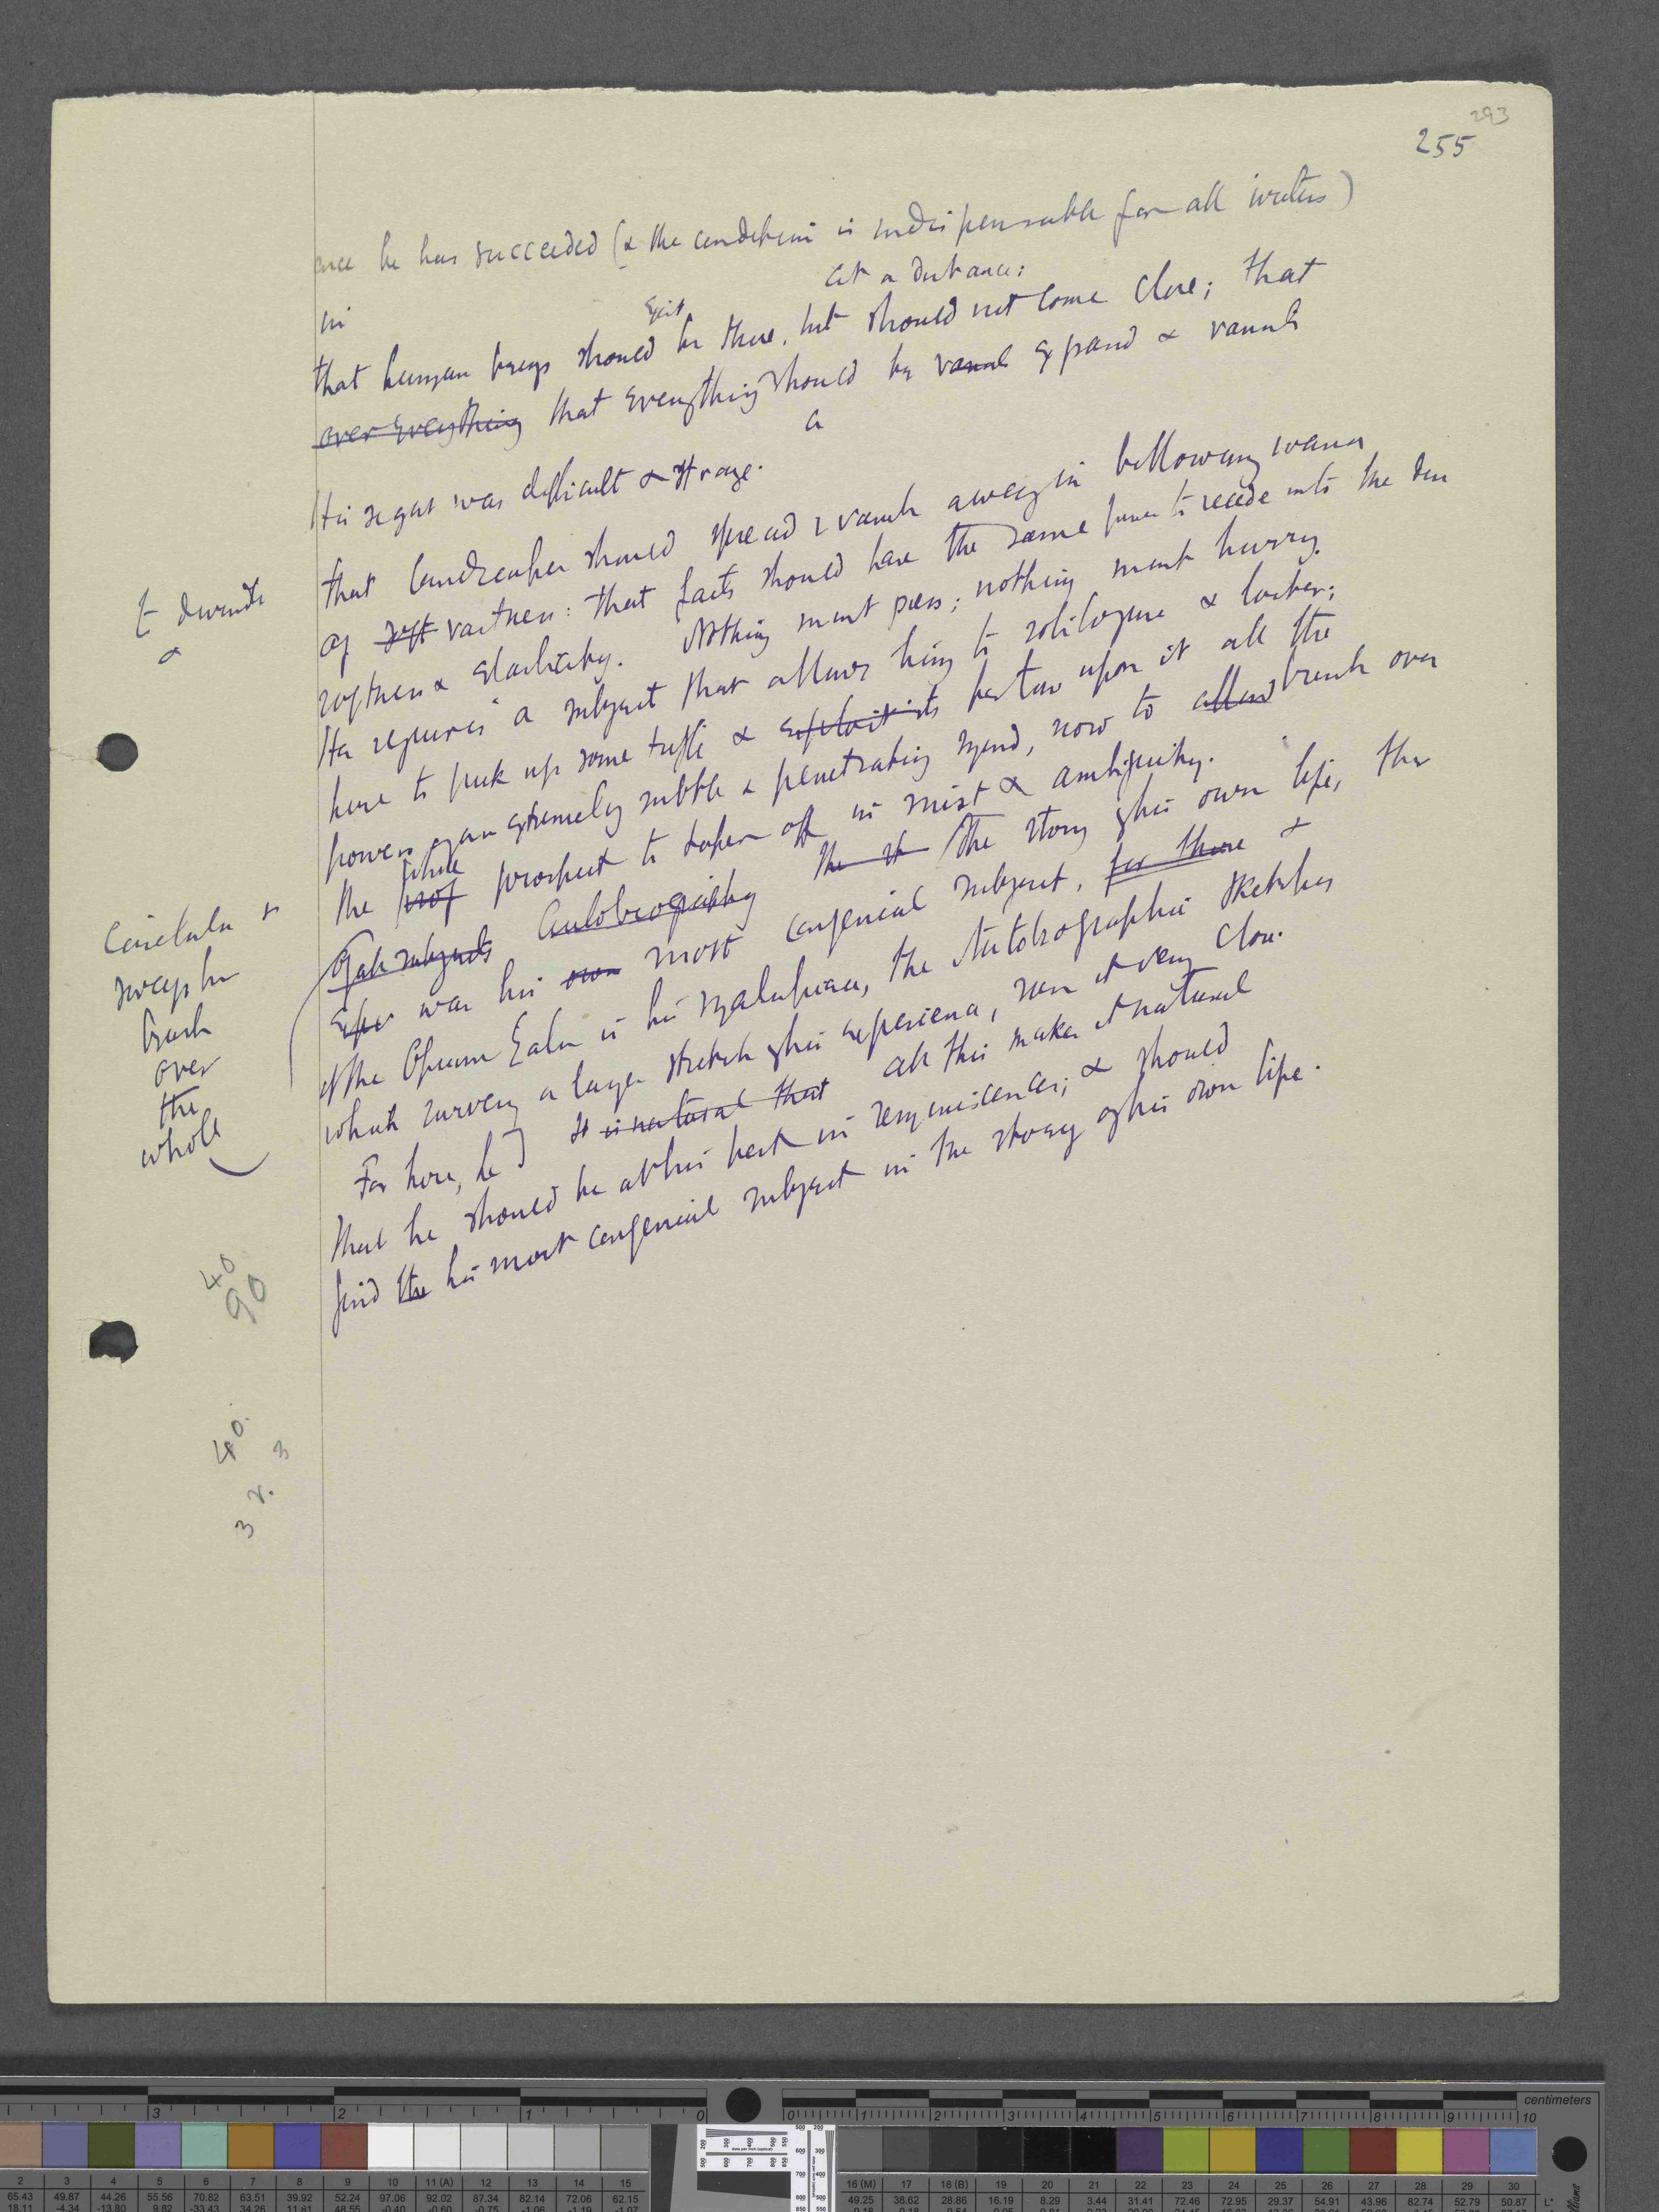 293
255
once he has succeeded (& the condition is indispensable for all writers)
in
at a distance;
exist
that human beings should be there, but should not come close; that
over everything that everything should be expand & vanish
a
His regard was difficult & strange.
that landscapes should spread & vanish away in billowing waves
of soft vastness: that facts should have the same power to recede into the
softness & elasticity. Nothing must press; nothing must hurry.
He requires a subject that allows him to soliloquise & loiter;
here to pick up some trifle & bestow upon it all the
powers of an extremely subtle & penetrating mind, now to allow brush over
the whole prospect to taper off in mist & ambiguity.
Of all subjects Autobiography the st The story of his own life, the
was his own most congenial subject, for there &
if the Opium Eater is his masterpiece, the Autobiographic Sketches
which survey a larger stretch of his experience, run it very close.
For here, he] It is natural that all this makes it natural
that he should be at his best in reminiscences; & should
find the his most congenial subject in the story of his own life.
to
&
sweep his
brush
over
the
whole
40
90
40.
3
2.
3
centimeters